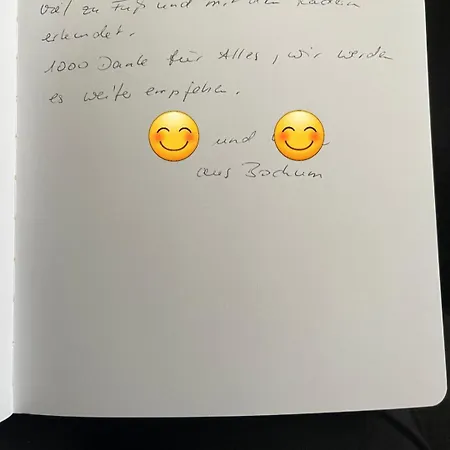 viel zu Fuß und mit den Rädern
erkundet.
1000 Danke für Alles, wir werden
es weiter empfehlen.
und
aus Bochum